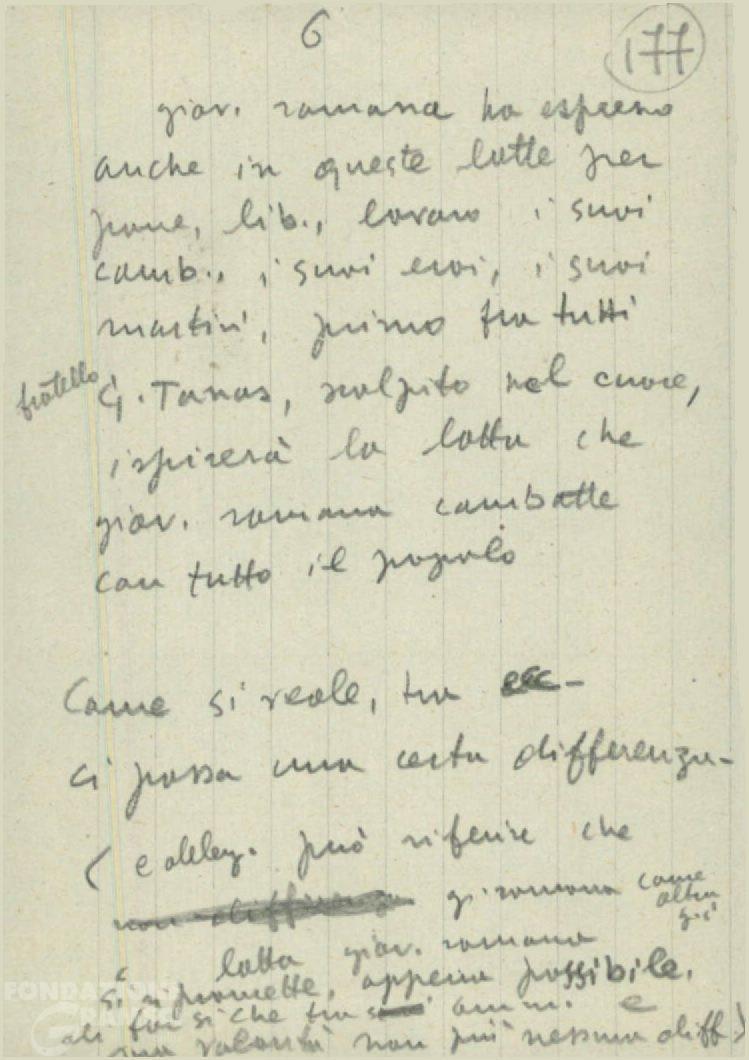 6
177
giov. romana ha espresso
anche in queste lotte per
pane, lib., lavoro i suoi
comb., i suoi eroi, i suoi
martiri, primo fra tutti
fratello
G. Tanas, scolpito nel cuore,
ispirerà la lotta che
giov. romana combatte
con tutto il popolo
Come si vede, tra
ci passa una certa differenza-
( e deleg. può riferire che
non differenza g. romana come altra
lotta giov. romana
si promette, appena possibile,
di far sì che tra e
sua volontà non più nessuna diff.)
FONDAZIONE
GRAMSCI